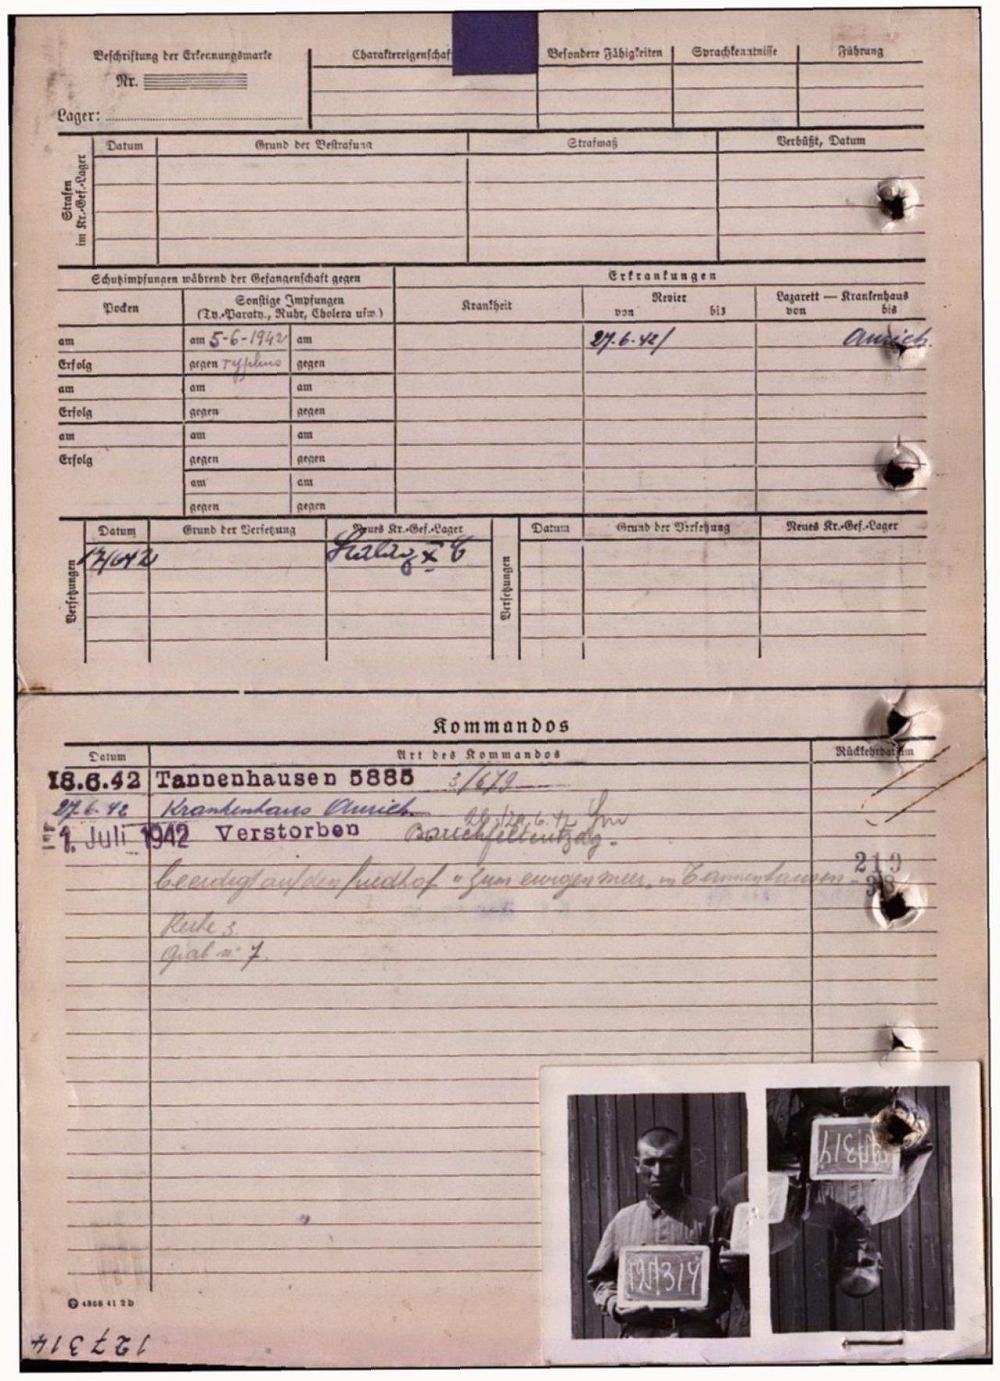 Beschriftung der Erkennungsmarke
Nr.
Lager:
Charaktereigenschaf
Besondere Fähigkeiten
Sprachkenntnisse
Führung
Strafen im Kr.-Gef.-Lager
Datum
Grund der Bestrafung
Strafmaß
Verbüßt, Datum
Schutzimpfungen während der Gefangenschaft gegen
Erkrankungen
Pocken
Sonstige Impfungen
(Ty.-Paraty., Ruhr, Cholera usw.)
Krankheit
Revier
von bis
Lazarett — Krankenhaus
von bis
am am 5-6-1942 am 27.6.42/ Aurich
Erfolg gegen Typhus gegen
am am am
Erfolg gegen gegen
am am am
Erfolg gegen gegen
am am
gegen gegen
Versetzungen
Datum Grund der Versetzung Neues Kr.-Gef.-Lager
17/6 42 Stalag X C
Versetzungen
Datum Grund der Versetzung Neues Kr.-Gef.-Lager
Kommandos
Datum Art des Kommandos Rückkehrdatum
18.6.42 Tannenhausen 5885
27.6.42 Krankenhaus Aurich
1. Juli 1942 Verstorben
Bauchfellentzdg.
219
beerdigt auf den Friedhof "Zum ewigen meer" in Tannenhausen
Reihe 3
Grab nr 7.
127314
127314
4868 41 2 D
127314